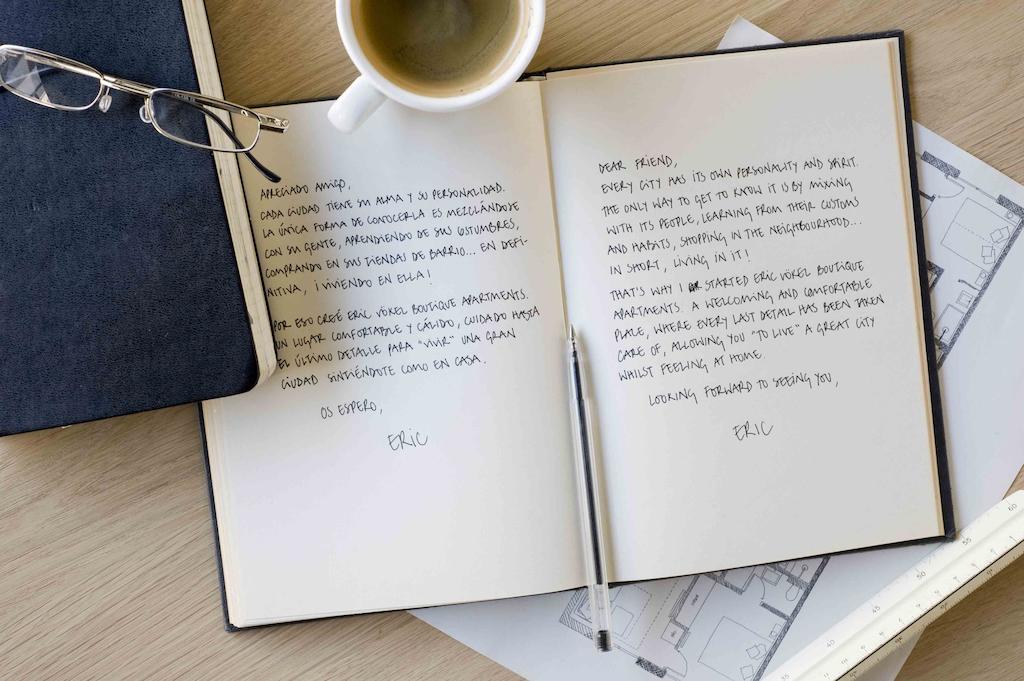 APRECIADO AMIGO,
CADA CIUDAD TIENE SU ALMA Y SU PERSONALIDAD.
LA ÚNICA FORMA DE CONOCERLA ES MEZCLÁNDOSE
CON SU GENTE, APRENDIENDO DE SUS COSTUMBRES,
COMPRANDO EN SUS TIENDAS DE BARRIO... EN DEFI-
NITIVA, ¡VIVIENDO EN ELLA!
POR ESO CREÉ ERIC VÖKEL BOUTIQUE APARTMENTS.
UN LUGAR COMFORTABLE Y CÁLIDO, CUIDADO HASTA
EL ÚLTIMO DETALLE PARA "VIVIR" UNA GRAN
CIUDAD SINTIÉNDOTE COMO EN CASA.
OS ESPERO,
ERIC
DEAR FRIEND,
EVERY CITY HAS ITS OWN PERSONALITY AND SPIRIT.
THE ONLY WAY TO GET TO KNOW IT IS BY MIXING
WITH ITS PEOPLE, LEARNING FROM THEIR CUSTOMS
AND HABITS, SHOPPING IN THE NEIGHBOURHOOD...
IN SHORT, LIVING IN IT!
THAT'S WHY I STARTED ERIC VÖKEL BOUTIQUE
APARTMENTS. A WELCOMING AND COMFORTABLE
PLACE, WHERE EVERY LAST DETAIL HAS BEEN TAKEN
CARE OF, ALLOWING YOU "TO LIVE" A GREAT CITY
WHILST FEELING AT HOME.
LOOKING FORWARD TO SEEING YOU,
ERIC
35 40 45 50 55 60